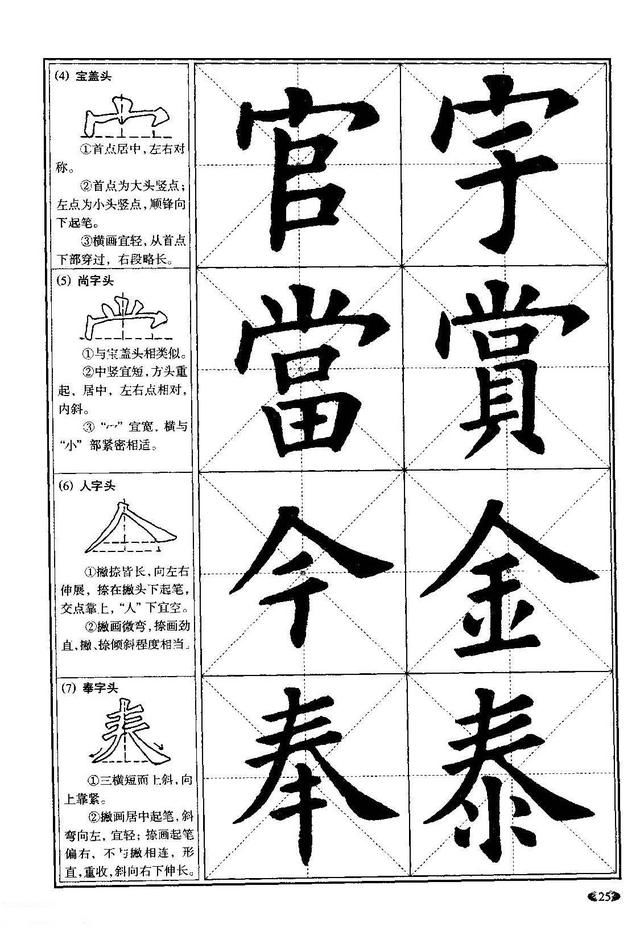 (4) 宝盖头
①首点居中,左右对
称。
②首点为大头竖点;
左点为小头竖点,顺锋向
下起笔。
③横画宜轻,从首点
下部穿过,右段略长。
官 字
(5) 尚字头
①与宝盖头相类似。
②中竖宜短,方头重
起、居中,左右点相对,
内斜。
③“冖”宜宽,横与
“小”部紧密相适。
當 賞
(6) 人字头
①撇捺皆长,向左右
伸展,捺在撇头下起笔,
交点靠上,“人”下宜空。
②撇画微弯,捺画劲
直,撇、捺倾斜程度相当。
今 金
(7) 奉字头
①三横短而上斜,向
上靠紧。
②撇画居中起笔,斜
弯向左,宜轻;捺画起笔
偏右,不与撇相连,形
直,重收,斜向右下伸长。
奉 泰
25